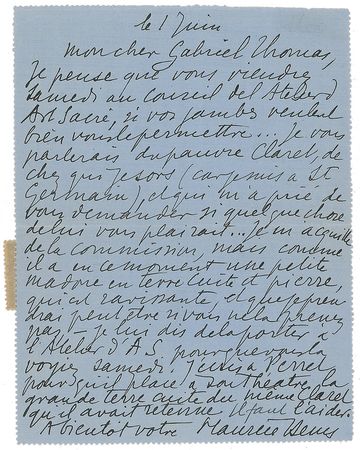 le 1 juin
mon cher Gabriel Thomas,
Je pense que vous viendrez
samedi au Conseil de l'Atelier d
Art Sacré, si vos jambes veulent
bien vous le permettre... Je vous
parlerais du pauvre Claret, de
chez qui je sors (car je suis à St
Germain), et qui m'a prié de
vous demander si quelque chose
de lui vous plairait... Je m'acquitte
de la commission, mais comme
il a en ce moment une petite
madone en terre cuite et pierre,
qui est ravissante, et que je pren
drai peut être si vous ne la prenez
pas — je lui dis de la porter à
l'Atelier d'A.S. pour que vous la
voyiez samedi. J'écris à
pour qu'il place à son théâtre, la
grande terre cuite du même Claret
qu'il avait retenue. Il faut l'aider.
A bientôt votre Maurice Denis